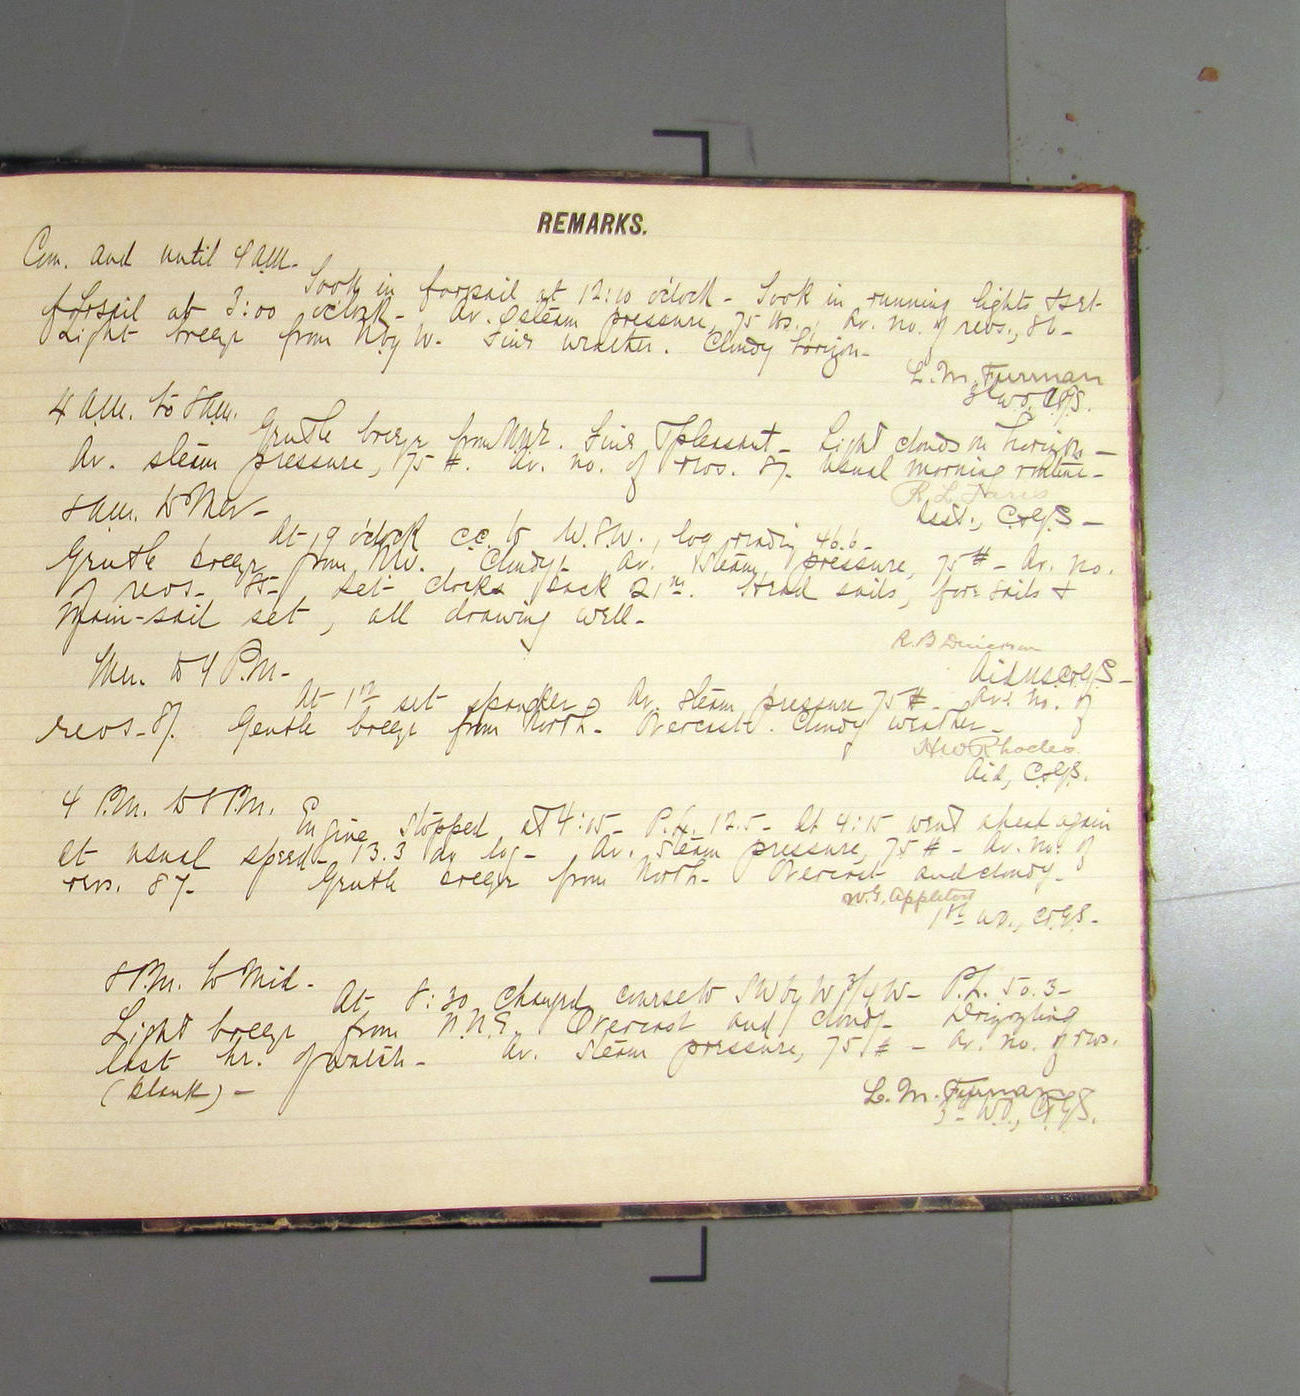 REMARKS.
Com. and until 4 a.m.
Took in foresail at 12:10 o'clock - Took in running lights & set
foresail at 3:00 o'clock - Av. steam pressure, 75 lbs., Av. no. of revs., 86 -
Light breeze from N by W. Fine weather. Cloudy horizon -
L. M. Furman
3d W.O. C.&G.S.
4 a.m. to 8 a.m.
Gentle breeze from NNE. Fine & pleasant - Light clouds on horizon -
Av. steam pressure, 75 #. Av. no. of revs. 87. Usual morning routine -
R. L. Faris
Asst., C.&G.S -
8 a.m. to Mer -
At 9 o'clock c.c. to W.S.W., log reading 46.6 -
Gentle breeze from NW. Cloudy. Av. Steam pressure, 75 # - Av. no.
of revs - 85 - Set clocks back 21 m. Head sails, fore sails &
Main-sail set, all drawing well -
R. B. Derickson
Aid U.S.C.&G.S -
Mer. to 4 P.M. -
At 1 set spanker - Av. steam pressure 75 # - Av. no. of
revs - 87. Gentle breeze from North - Overcast. Cloudy weather -
H W Rhodes
Aid, C.&G.S.
4 P.M. to 8 P.M.
Engine stopped at 4:05 - P.L. 12.5 - At 4:15 went ahead again
at usual speed - 13.3 by log - Av. Steam pressure, 75 # - Av. no. of
revs. 87 - Gentle breeze from North - Overcast and cloudy -
W. E. Appleton
1st W.O., C.&G.S -
8 P.M. to Mid -
At 8:30 changed course to SW by W 3/4 W - P.L. 50.3 -
Light breeze from N.N.E. Overcast and cloudy - Drizzling
last hr. of watch - Av. Steam pressure, 75 # - Av. no. of revs.
(blank) -
L. M. Furman
3d W.O., C.&G.S.